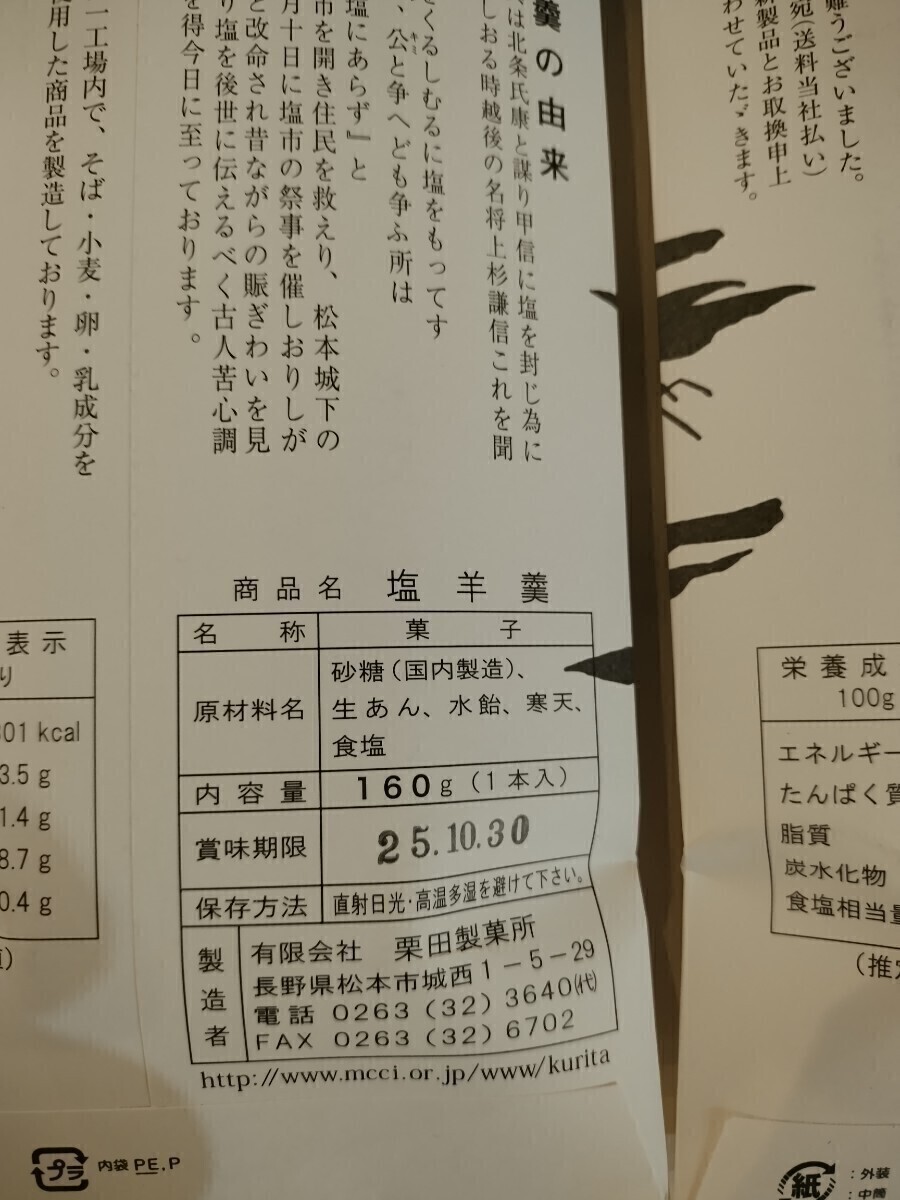 難うございました。
宛(送料当社払い)
新製品とお取換申上
わせていたゞきます。
羹の由来
は北条氏康と謀り甲信に塩を封じ為に
しおる時越後の名将上杉謙信これを聞
くるしむるに塩をもってす
、公と争へども争ふ所は
キミ
塩にあらず』と
市を開き住民を救えり、松本城下の
月十日に塩市の祭事を催しおりしが
と改命され昔ながらの賑ぎわいを見
り塩を後世に伝えるべく古人苦心調
を得今日に至っております。
一工場内で、そば・小麦・卵・乳成分を
使用した商品を製造しております。
商品名 塩羊羹
名称 菓子
原材料名 砂糖(国内製造)、
生あん、水飴、寒天、
食塩
内容量 160g(1本入)
賞味期限 25.10.30
保存方法 直射日光・高温多湿を避けて下さい。
製造者 有限会社 栗田製菓所
長野県松本市城西1-5-29
電話 0263(32)3640(代)
FAX 0263(32)6702
http://www.mcci.or.jp/www/kurita
表示
り
301 kcal
3.5 g
1.4 g
8.7 g
0.4 g
)
栄養成
100g
エネルギー
たんぱく質
脂質
炭水化物
食塩相当量
(推定
プラ 内袋 PE,P
紙 :外装
:中箱